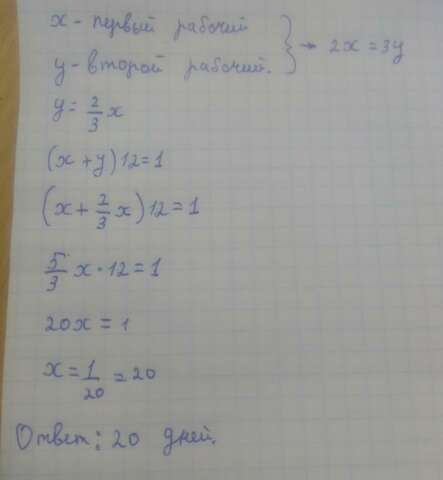 x - первый рабочий
y - второй рабочий. } → 2x = 3y
y = 2/3 x
(x + y) 12 = 1
(x + 2/3 x) 12 = 1
5/3 x · 12 = 1
20x = 1
x = 1/20 = 20
Ответ: 20 дней.